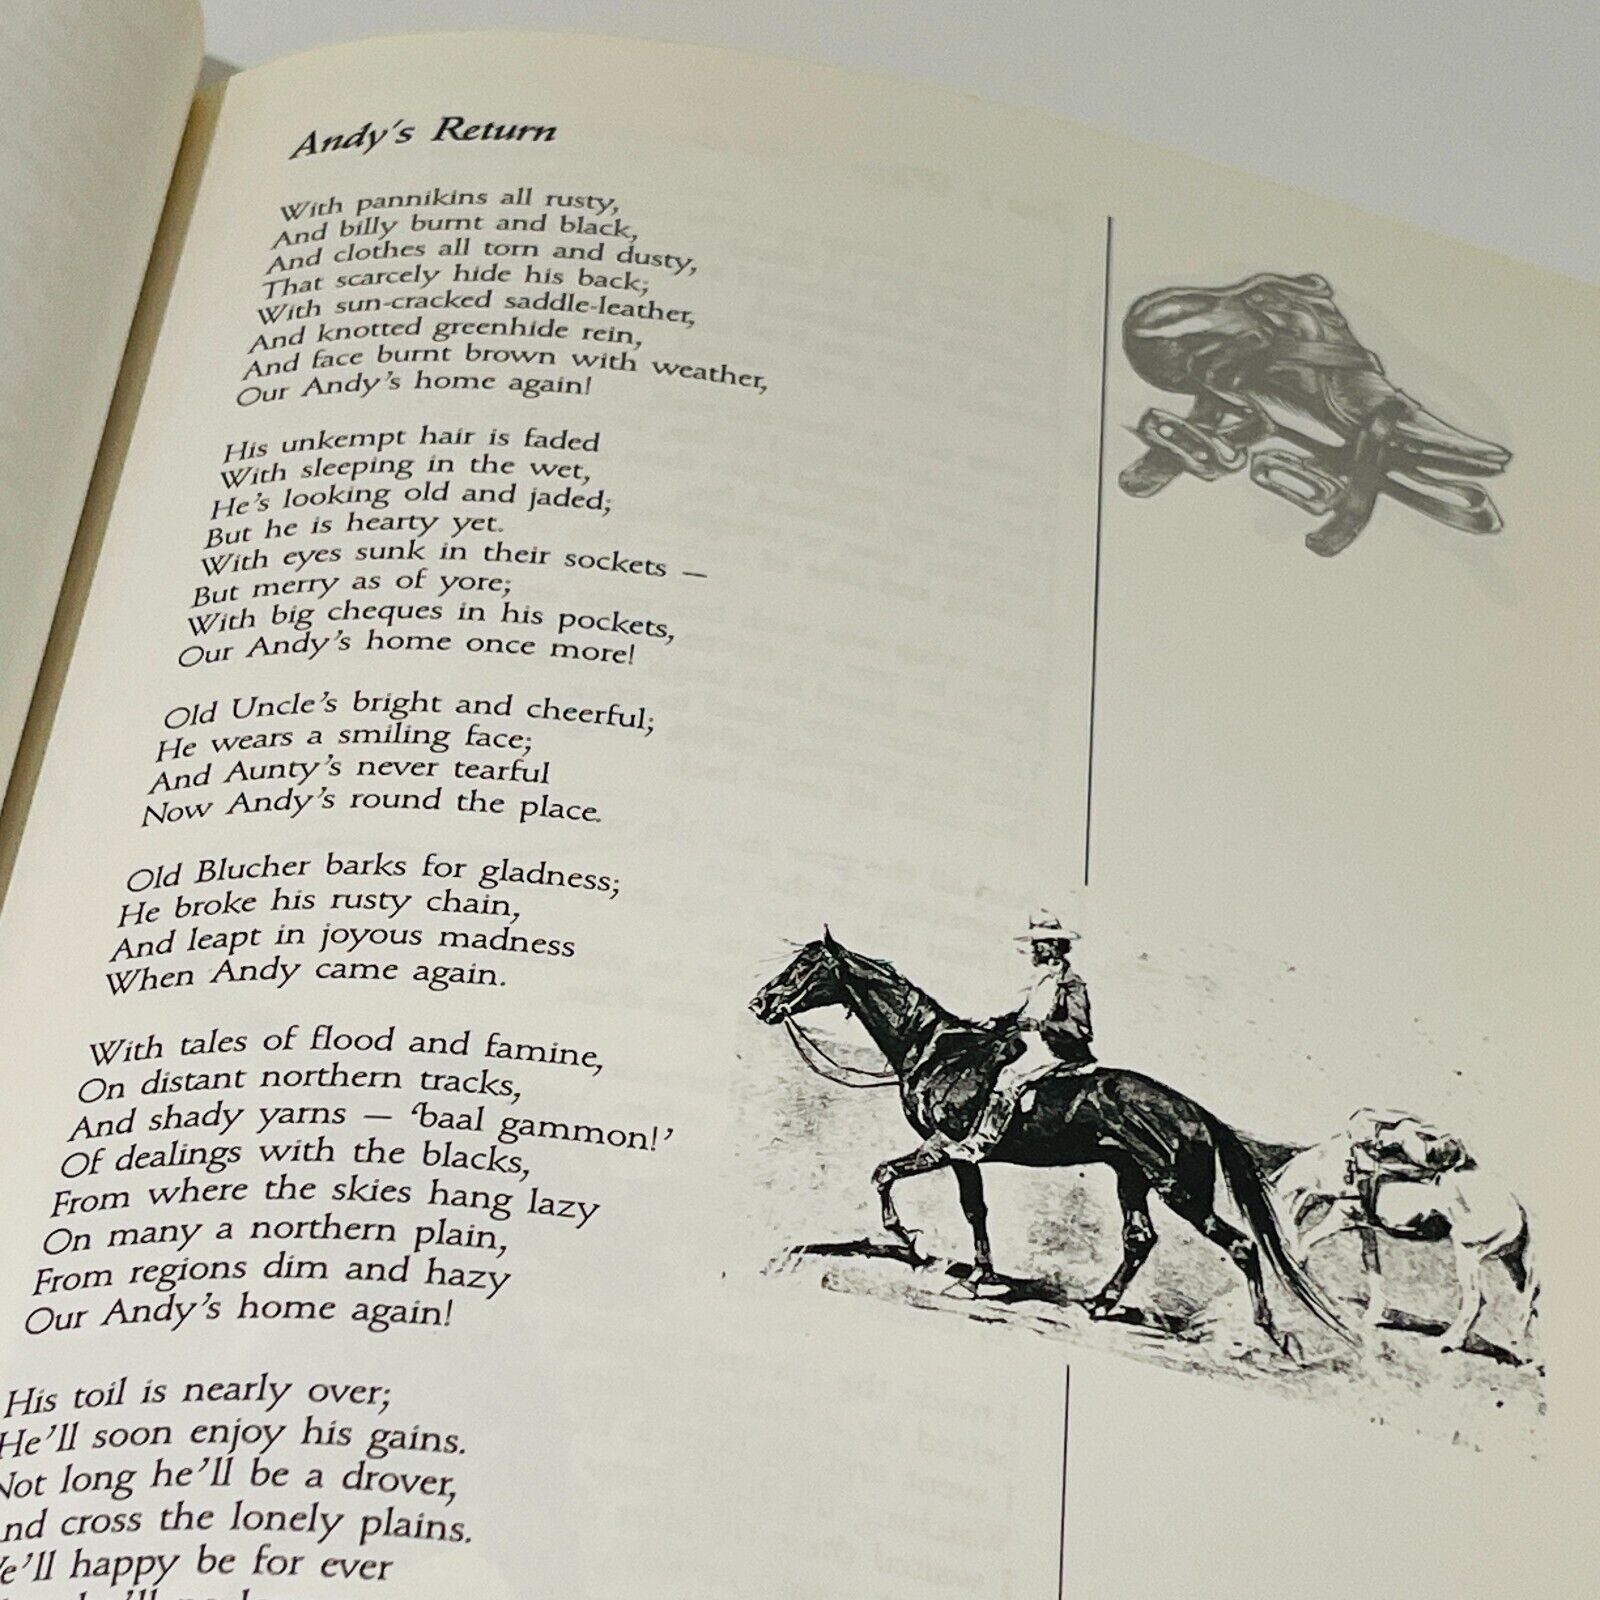 Andy's Return
With pannikins all rusty,
And billy burnt and black,
And clothes all torn and dusty,
That scarcely hide his back;
With sun-cracked saddle-leather,
And knotted greenhide rein,
And face burnt brown with weather,
Our Andy's home again!
His unkempt hair is faded
With sleeping in the wet,
He's looking old and jaded;
But he is hearty yet.
With eyes sunk in their sockets —
But merry as of yore;
With big cheques in his pockets,
Our Andy's home once more!
Old Uncle's bright and cheerful;
He wears a smiling face;
And Aunty's never tearful
Now Andy's round the place.
Old Blucher barks for gladness;
He broke his rusty chain,
And leapt in joyous madness
When Andy came again.
With tales of flood and famine,
On distant northern tracks,
And shady yarns — 'baal gammon!'
Of dealings with the blacks,
From where the skies hang lazy
On many a northern plain,
From regions dim and hazy
Our Andy's home again!
His toil is nearly over;
He'll soon enjoy his gains.
Not long he'll be a drover,
nd cross the lonely plains.
e'll happy be for ever